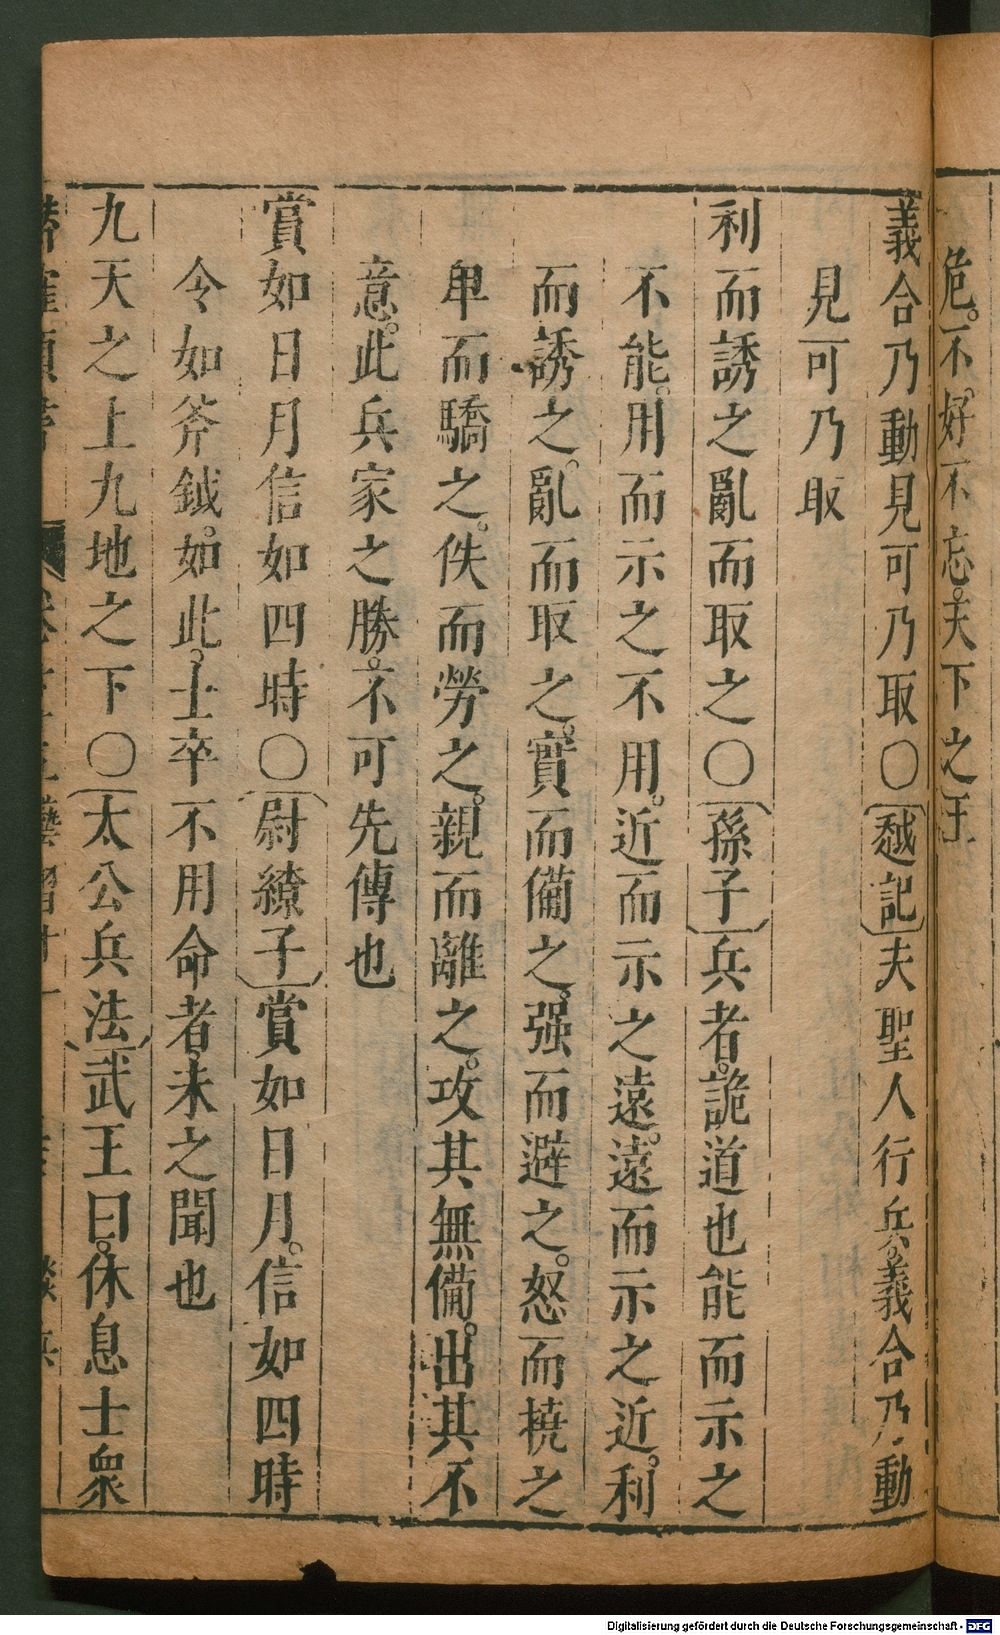 危。不好不忘。天下之王
義合乃動見可乃取〇〔越記〕夫聖人行兵。義合乃動
見可乃取
利而誘之亂而取之〇〔孫子〕兵者。詭道也能而示之
不能。用而示之不用。近而示之遠。遠而示之近。利
而誘之。亂而取之。實而備之。强而避之。怒而撓之
卑而驕之。佚而勞之。親而離之。攻其無備。出其不
意。此兵家之勝。不可先傳也
賞如日月信如四時〇〔尉繚子〕賞如日月。信如四時
令如斧鉞。如此。士卒不用命者。未之聞也
九天之上九地之下〇〔太公兵法〕武王曰。休息士衆
Digitalisierung gefördert durch die Deutsche Forschungsgemeinschaft - DFG